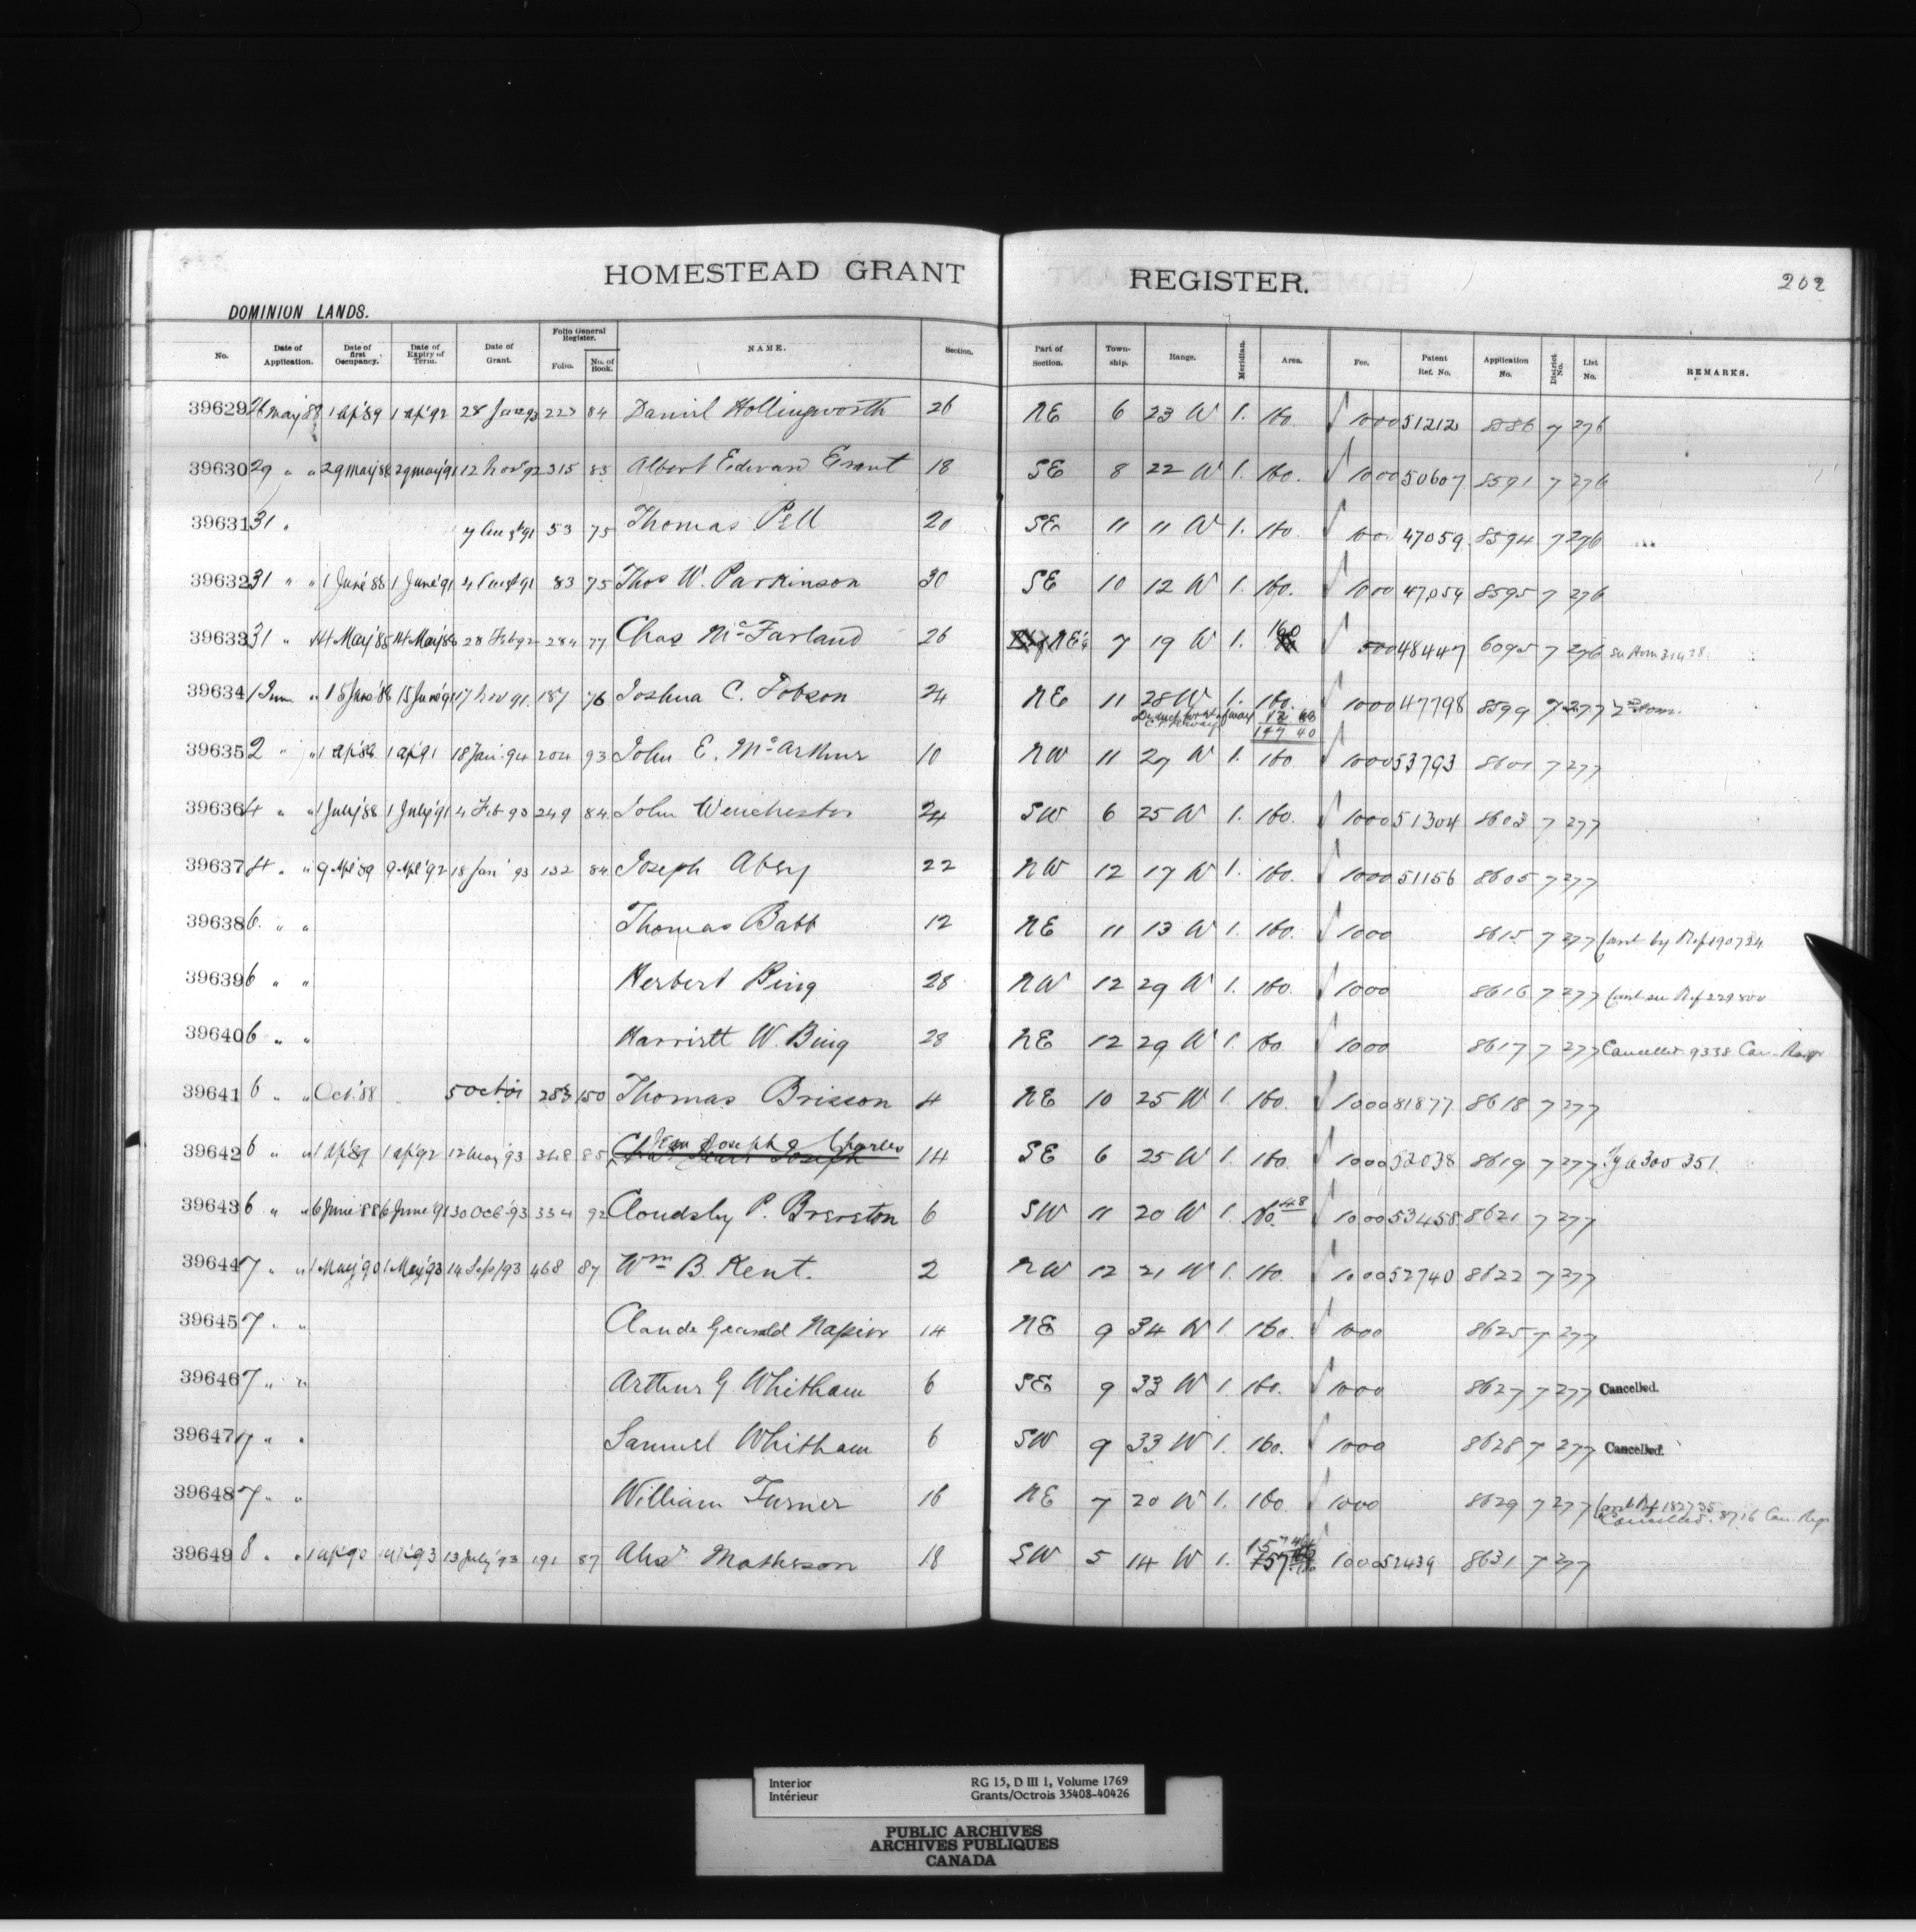 HOMESTEAD GRANT REGISTER.
202
DOMINION LANDS.
No. Date of Application. Date of first Occupancy. Date of Expiry of Term. Date of Grant. Folio General Register. Folio. No. of Book. NAME. Section. Part of Section. Town-ship. Range. Meridian. Area. Fee. Patent Ref. No. Application No. District No. List No. REMARKS.
39629 26 May '88 1 Ap '89 1 Ap '92 28 93 223 84 Daniel Hollingworth 26 NE 6 23 W 1. 160. 1000 51212 8586 7 276
39630 29 " " 29 May '88 29 May '91 12 Nov 92 315 83 Albert Edward Grant 18 SE 8 22 W 1. 160. 1000 50607 8591 7 276
39631 31 " 7 Augst 91 53 75 Thomas Pell 20 SE 11 11 W 1. 160. 1000 47059 8594 7 276
39632 31 " " 1 June '88 1 June '91 4 Augst 91 83 75 Thos W. Parkinson 30 SE 10 12 W 1. 160. 1000 47054 8595 7 276
39633 31 " 14 May '85 14 May '88 28 Feb 92 284 77 Chas McFarland 26 NE¼ 7 19 W 1. 160 500 48447 6095 7 276 See Hom
39634 1 June " 15 June '88 15 June '91 17 Nov 91. 187 76 Joshua C. Fobson 24 NE 11 28 W 1. 160. 1000 47798 8599 7 277 2nd Hom.
Deduct for rt of way 12 60
147 40
39635 2 " " 1 Ap '88 1 Ap '91 18 Jan. 94 204 93 John E. McArthur 10 NW 11 27 W 1. 160. 1000 53793 8601 7 277
39636 4 " " 1 July '88 1 July '91 4 Feb 93 249 84 John Weuchester 24 SW 6 25 W 1. 160. 1000 51304 8603 7 277
39637 4 " " 9 Apl '89 9 Apl '92 18 Jan' 93 132 84 Joseph Abey 22 NW 12 17 W 1. 160. 1000 51156 8605 7 277
39638 6 " " Thomas Babb 12 NE 11 13 W 1. 160. 1000 8615 7 277 Canld by Ref 190734
39639 6 " " Herbert Bing 28 NW 12 29 W 1. 160. 1000 8616 7 277 Canld see Ref 229800
39640 6 " " Harriett W. Bing 28 NE 12 29 W 1. 160. 1000 8617 7 277 Cancelled 9338 Can. Regr
39641 6 " " Oct. '88 5 Oct 01 283 150 Thomas Brisson 4 NE 10 25 W 1. 160. 1000 81877 8618 7 277
39642 6 " " 1 Ap '89 1 Ap '92 12 May 93 348 85 Jean Joseph Charles 14 SE 6 25 W 1. 160. 1000 52038 8619 7 277 300351.
39643 6 " " 6 June '88 6 June '91 30 Oct. 93 334 92 Cloudsley P. Brereton 6 SW 11 20 W 1. 160.48 1000 53458 8621 7 277
39644 7 " " 1 May '90 1 May '93 14 Sep 93 468 87 Wm B. Kent. 2 NW 12 21 W 1. 160. 1000 52740 8622 7 277
39645 7 " " Claude Gerald Napier 14 NE 9 34 W 1. 160. 1000 8625 7 277
39646 7 " " Arthur G. Whitham 6 SE 9 33 W 1. 160. 1000 8627 7 277 Cancelled.
39647 7 " " Samuel Whitham 6 SW 9 33 W 1. 160. 1000 8628 7 277 Cancelled.
39648 7 " " William Turner 16 NE 7 20 W 1. 160. 1000 8629 7 277 Canld Ref 182735
Cancelled. 8716 Can. Regr
39649 8 " " 1 Ap '90 1 Ap '93 13 July 93 191 87 Alexr Matheson 18 SW 5 14 W 1. 157 1000 52439 8631 7 277
Interior
Intérieur
RG 15, D III 1, Volume 1769
Grants/Octrois 35408-40426
PUBLIC ARCHIVES
ARCHIVES PUBLIQUES
CANADA